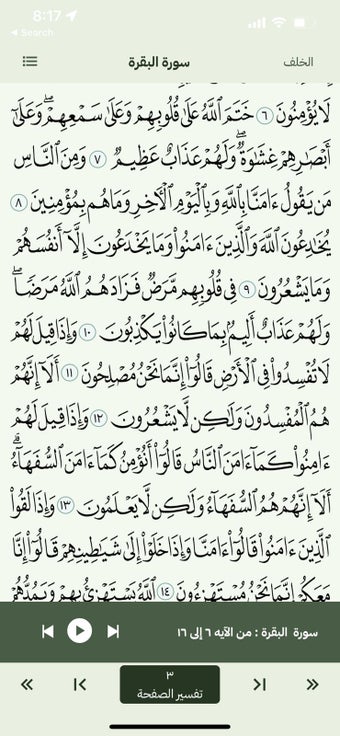 8:17
◀ Search
الخلف سورة البقرة
لَا يُؤْمِنُونَ ٦ خَتَمَ ٱللَّهُ عَلَىٰ قُلُوبِهِمْ وَعَلَىٰ سَمْعِهِمْۖ وَعَلَىٰٓ
أَبْصَـٰرِهِمْ غِشَـٰوَةٌۖ وَلَهُمْ عَذَابٌ عَظِيمٌ ٧ وَمِنَ ٱلنَّاسِ
مَن يَقُولُ ءَامَنَّا بِٱللَّهِ وَبِٱلْيَوْمِ ٱلْـَٔاخِرِ وَمَا هُم بِمُؤْمِنِينَ ٨
يُخَـٰدِعُونَ ٱللَّهَ وَٱلَّذِينَ ءَامَنُوا۟ وَمَا يَخْدَعُونَ إِلَّآ أَنفُسَهُمْ
وَمَا يَشْعُرُونَ ٩ فِى قُلُوبِهِم مَّرَضٌ فَزَادَهُمُ ٱللَّهُ مَرَضًاۖ
وَلَهُمْ عَذَابٌ أَلِيمٌۢ بِمَا كَانُوا۟ يَكْذِبُونَ ١٠ وَإِذَا قِيلَ لَهُمْ
لَا تُفْسِدُوا۟ فِى ٱلْأَرْضِ قَالُوٓا۟ إِنَّمَا نَحْنُ مُصْلِحُونَ ١١ أَلَآ إِنَّهُمْ
هُمُ ٱلْمُفْسِدُونَ وَلَـٰكِن لَّا يَشْعُرُونَ ١٢ وَإِذَا قِيلَ لَهُمْ
ءَامِنُوا۟ كَمَآ ءَامَنَ ٱلنَّاسُ قَالُوٓا۟ أَنُؤْمِنُ كَمَآ ءَامَنَ ٱلسُّفَهَآءُۗ
أَلَآ إِنَّهُمْ هُمُ ٱلسُّفَهَآءُ وَلَـٰكِن لَّا يَعْلَمُونَ ١٣ وَإِذَا لَقُوا۟
ٱلَّذِينَ ءَامَنُوا۟ قَالُوٓا۟ ءَامَنَّا وَإِذَا خَلَوْا۟ إِلَىٰ شَيَـٰطِينِهِمْ قَالُوٓا۟ إِنَّا
مَعَكُمْ إِنَّمَا نَحْنُ مُسْتَهْزِءُونَ ١٤ ٱللَّهُ يَسْتَهْزِئُ بِهِمْ وَيَمُدُّهُمْ
سورة البقرة : من الآيه ٦ إلى ١٦
٣
تفسير الصفحة